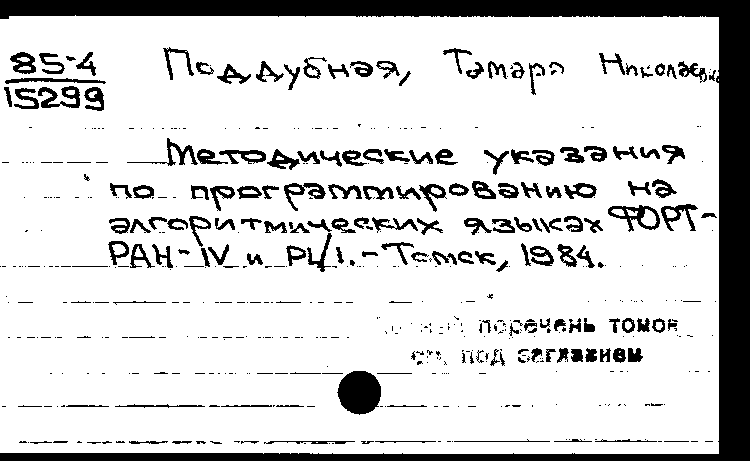 85-4
15299
Поддубная, Тамара Николаевна
Методические указания
по программированию на
алгоритмических языках ФОРТ-
РАН-IV и PL/1.-Томск, 1984.
перечень томов
см. под заглавием